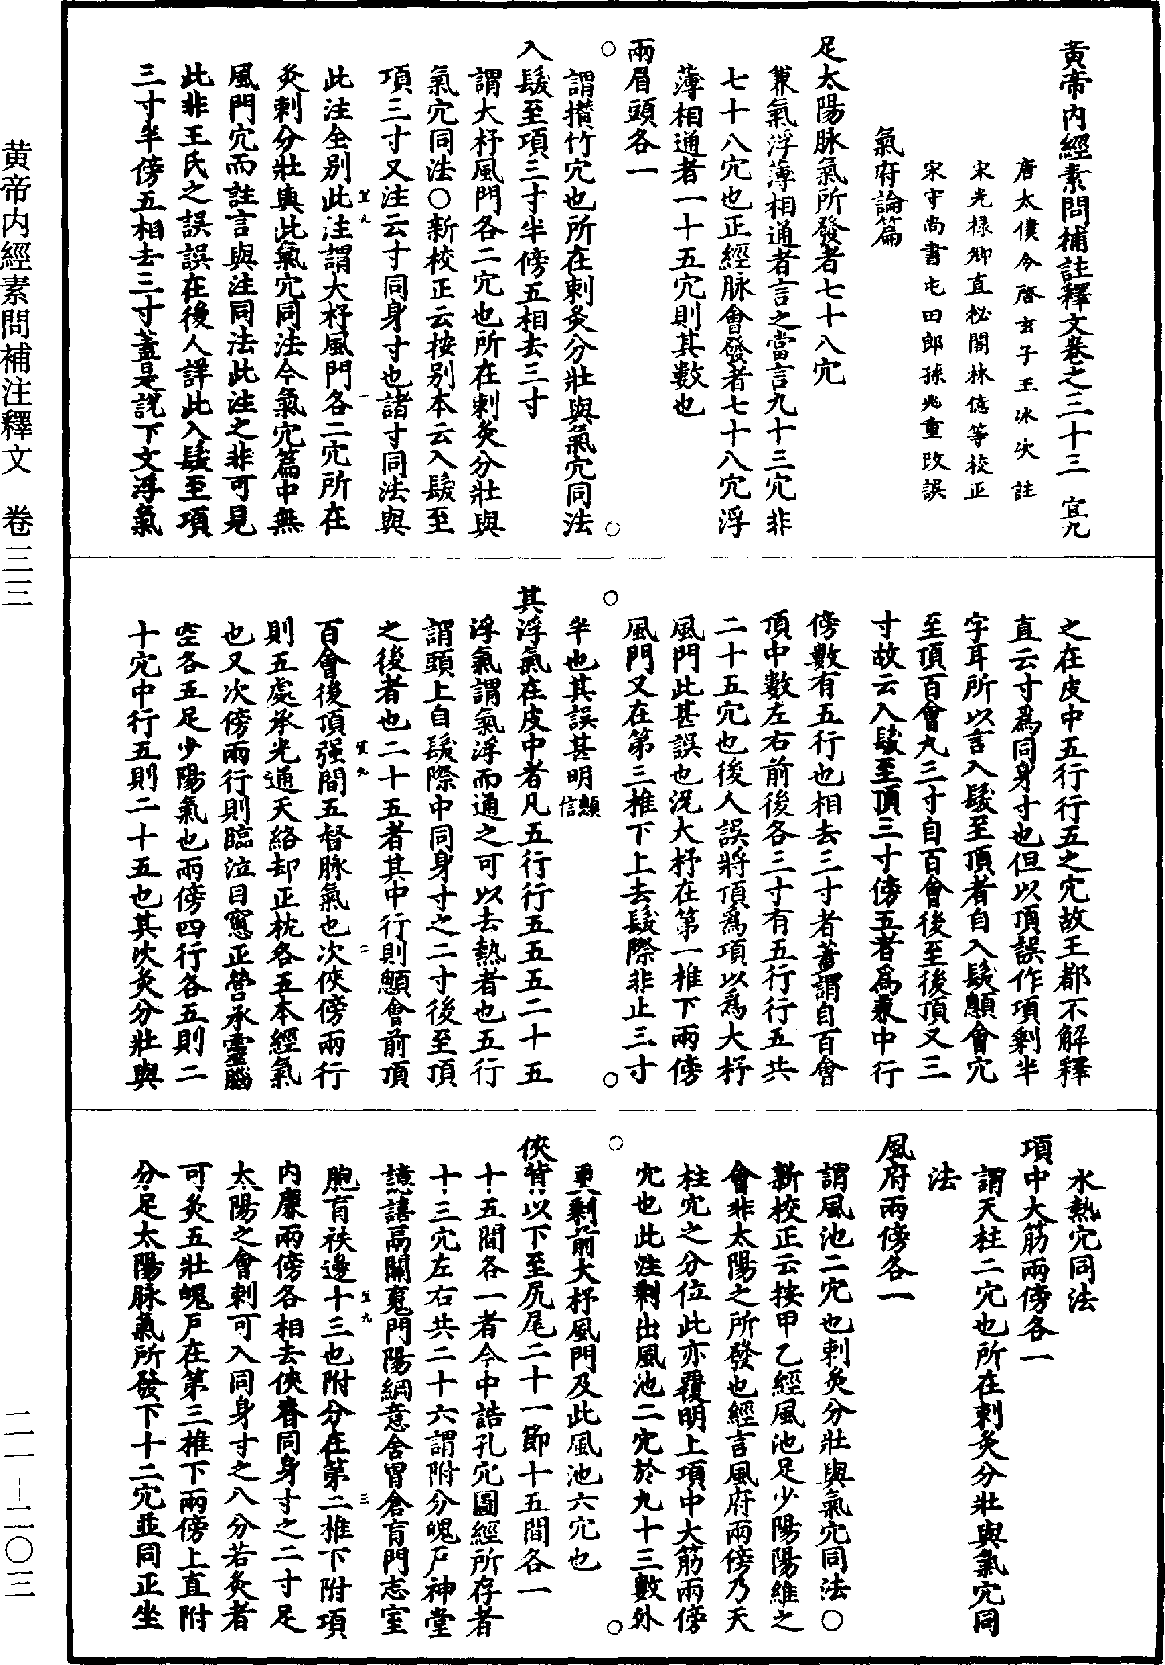 黃帝內經素問補註釋文卷之三十三　宜九
唐太僕令啓玄子王冰次註
宋光祿卿直祕閣林億等校正
宋守尚書屯田郎孫兆重改誤
氣府論篇
足太陽脉氣所發者七十八穴
兼氣浮薄相通者言之當言九十三穴非
七十八穴也正經脉會發者七十八穴浮
薄相通者一十五穴則其數也
兩眉頭各一
謂攢竹穴也所在刺灸分壯與氣穴同法
入髮至項三寸半傍五相去三寸
謂大杼風門各二穴也所在刺灸分壯與
氣穴同法○新校正云按别本云入髮至
項三寸又注云寸同身寸也諸寸同法與
此注全别此注謂大杼風門各二穴所在
灸刺分壯與此氣穴同法今氣穴篇中無
風門穴而註言與注同法此注之非可見
此非王氏之誤誤在後人詳此入髮至項
三寸半傍五相去三寸蓋是說下文浮氣
之在皮中五行行五之穴故王都不解釋
直云寸爲同身寸也但以頂誤作項剩半
字耳所以言入髮至頂者自入髮顖會穴
至頂百會九三寸自百會後至後頂又三
寸故云入髮至頂三寸傍五者爲兼中行
傍數有五行也相去三寸者蓋謂自百會
頂中數左右前後各三寸有五行行五共
二十五穴也後人誤將頂爲項以爲大杼
風門此甚誤也況大杼在第一椎下兩傍
風門又在第三椎下上去髮際非止三寸
半也其誤甚明顖信
其浮氣在皮中者凡五行行五五五二十五
浮氣謂氣浮而通之可以去熱者也五行
謂頭上自髮際中同身寸之二寸後至頂
之後者也二十五者其中行則顖會前頂
百會後頂强間五督脉氣也次俠傍兩行
則五處承光通天絡却正枕各五本經氣
也又次傍兩行則臨泣目窻正營承靈腦
空各五足少陽氣也兩傍四行各五則二
十穴中行五則二十五也其次灸分壯與
水熱穴同法
項中大筋兩傍各一
謂天柱二穴也所在刺灸分壯與氣穴同
法
風府兩傍各一
謂風池二穴也刺灸分壯與氣穴同法○
新校正云按甲乙經風池足少陽陽維之
會非太陽之所發也經言風府兩傍乃天
柱穴之分位此亦覆明上項中大筋兩傍
穴也此注剩出風池二穴於九十三數外
更剩前大杼風門及此風池六穴也
俠背以下至尻尾二十一節十五間各一
十五間各一者今中誥孔穴圖經所存者
十三穴左右共二十六謂附分魄戶神堂
譩譆鬲關䰟門陽綱意舍胃倉肓門志室
胞肓祑邊十三也附分在第二椎下附項
內廉兩傍各相去俠脊同身寸之二寸足
太陽之會刺可入同身寸之八分若灸者
可灸五壯魄戶在第三椎下兩傍上直附
分足太陽脉氣所發下十二穴並同正坐
黃帝內經素問補注釋文　卷三三
二一－二〇三